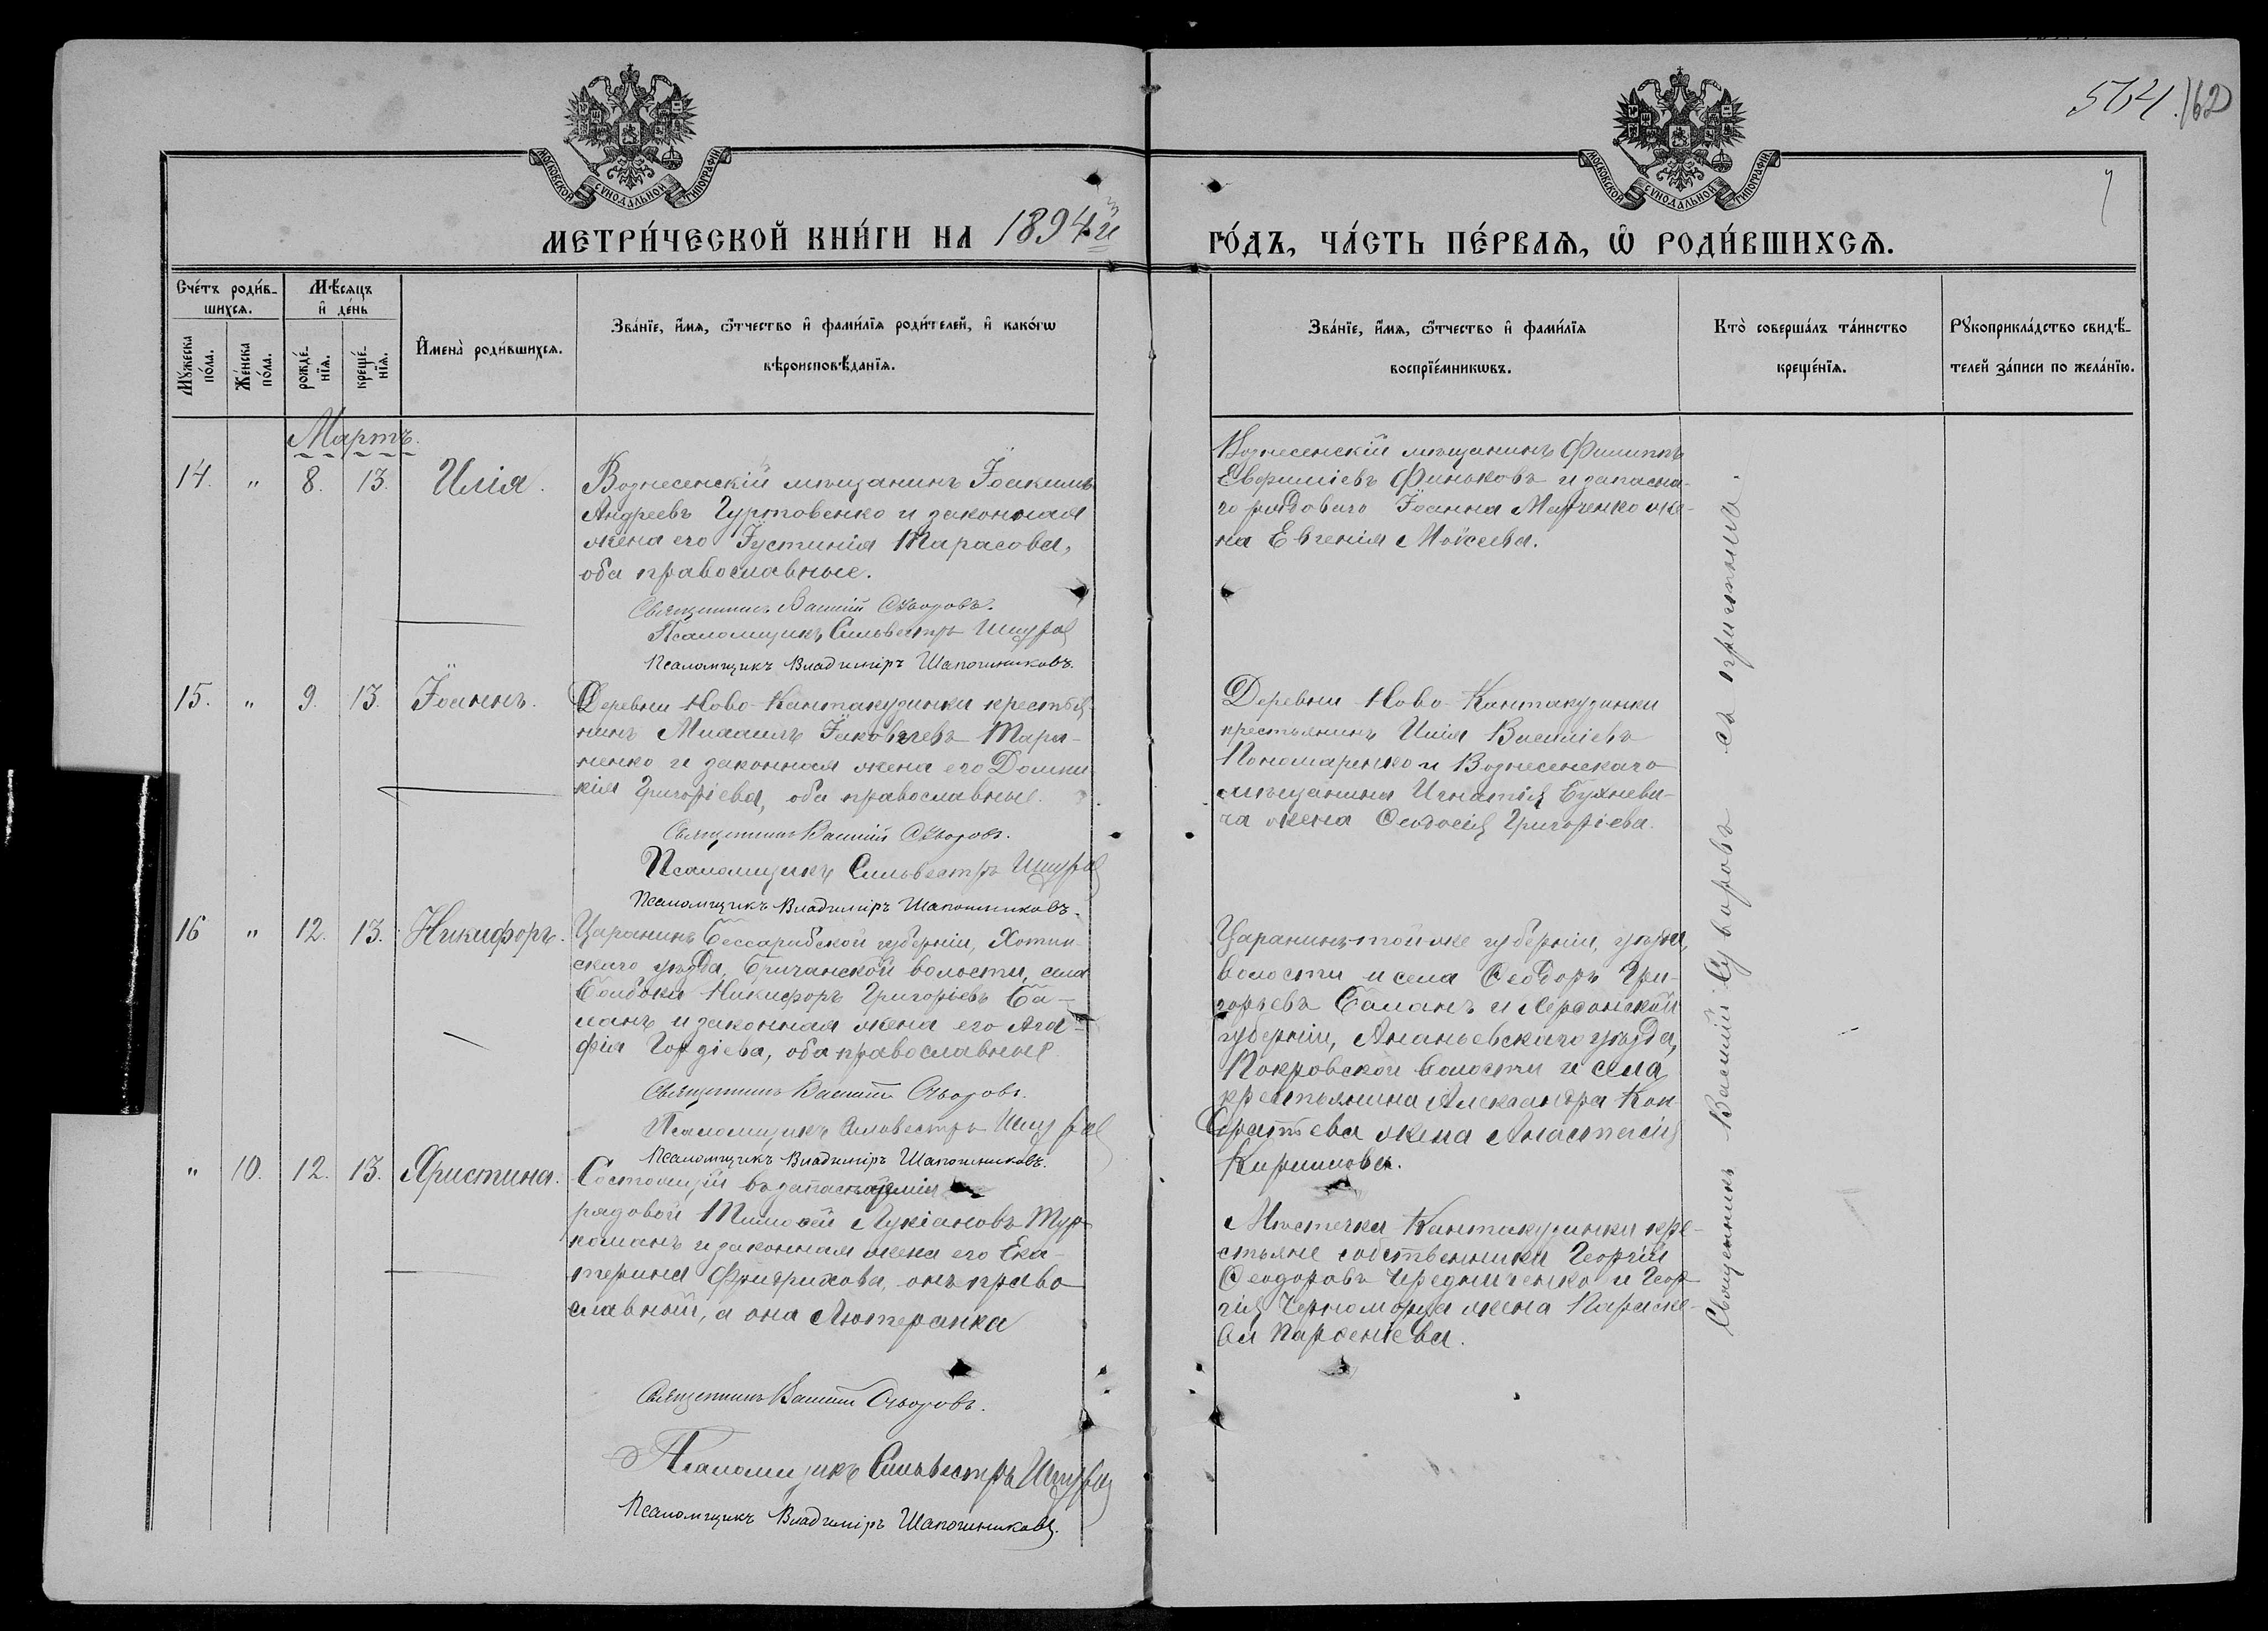 564. 162
МОСКОВСКОЙ СѴНОДАЛЬНОЙ ТИПОГРАФІИ
МОСКОВСКОЙ СѴНОДАЛЬНОЙ ТИПОГРАФІИ
МЕТРИ́ЧЕСКОЙ КНИ́ГИ НА 1894й
ГО́ДЪ, ЧА́СТЬ ПЕ́РВАѦ, Ѽ РОДИ́ВШИХСѦ.
Сче́тъ роди́в-
шихсѧ.
Му́жеска по́ла.
Же́нска по́ла.
Мѣ́сяцъ
и҆ де́нь
рожде́-
нїѧ.
креще́-
нїѧ.
И҆мена̀ роди́вшихсѧ.
Зва́нїе, и҆́мѧ, ѻ҆́тчество и҆ фами́лїѧ роди́телей, и҆ како́гѡ
вѣроисповѣ́данїѧ.
Зва́нїе, и҆́мѧ, ѻ҆́тчество и҆ фами́лїѧ
воспрїе́мникѡвъ.
Кто̀ соверша́лъ та́инство
креще́нїѧ.
Рꙋкоприкла́дство свидѣ́-
телей за́писи по жела́нїю.
Мартъ.
14. " 8. 13. Илія.
Вознесенскій мѣщанинъ Іоакимъ
Андреевъ Гуртовенко и законная
жена его Іустинія Тарасова,
оба православные.
Священникъ Василій Суворовъ.
Псаломщикъ Сильвестръ
Псаломщикъ Владиміръ Шапошниковъ.
Вознесенскій мѣщанинъ Филиппъ
Евфиміевъ Финьковъ и запасна-
го рядоваго Іоанна Марченко же-
на Евгенія Моѵсеева.
15. " 9. 13. Іоаннъ.
Деревни Ново-Кантакузинки крестья-
нинъ Михаилъ Іаковлевъ Тара-
ненко и законная жена его Домни-
кія Григоріева, оба православные.
Священникъ Василій Суворовъ.
Псаломщикъ Сильвестръ
Псаломщикъ Владиміръ Шапошниковъ.
Деревни Ново-Кантакузинки
крестьянинъ Илія Василіевъ
Пономаренко и Вознесенскаго
мѣщанина Игнатія Бухневи-
ча жена Ѳеодосія Григоріева.
16 " 12. 13. Никифоръ.
Царанинъ Бессарабской губерніи, Хотин-
скаго уѣзда, Бричанской волости, села
Болбоки Никифоръ Григоріевъ Ба-
ланъ и законная жена его Ага-
фія Гордіева, оба православные
Священникъ Василій Суворовъ.
Псаломщикъ Сильвестръ
Псаломщикъ Владиміръ Шапошниковъ.
Царанинъ той-же губерніи, уѣзда,
волости и села Ѳеодоръ Гри-
горьевъ Баланъ и Херсонской
губерніи, Ананьевскаго уѣзда,
Покровской волости и села
крестьянина Александра Кон-
дратьева жена Анастасія
Кириллова.
" 10. 12. 13. Христина.
Состоящій въ запасѣ арміи
рядовой Тимоѳей Лукіановъ Тур-
команъ и законная жена его Ека-
терина Фридрихова, онъ право-
славный, а она Лютеранка
Священникъ Василій Суворовъ.
Псаломщикъ Сильвестръ
Псаломщикъ Владиміръ Шапошниковъ.
Мѣстечка Кантакузинки кре-
стьяне собственники Георгій
Ѳеодоровъ Чередниченко и Геор-
гія Черноморца жена Параске-
ва Парѳеніева.
Священникъ Василій Суворовъ съ причтомъ.